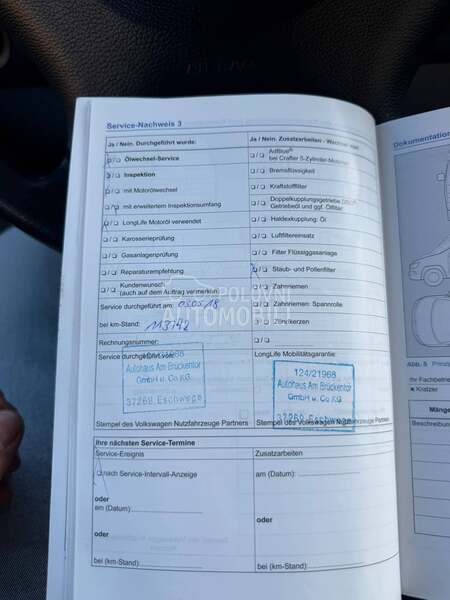 Service-Nachweis 3
Ja / Nein. Durchgeführt wurde:
Ölwechsel-Service
Inspektion
mit Motorölwechsel
mit erweitertem Inspektionsumfang
LongLife Motoröl verwendet
Karosserieprüfung
Gasanlagenprüfung
Reparaturempfehlung
Kundenwunsch
(auch auf dem Auftrag vermerkun)
Service durchgeführt am: 030518
bei km-Stand: 113742
Rechnungsnummer:
Service durchgeführt
Autohaus Am Brückentor
GmbH u. Co KG
37269 Eschwege
Stempel des Volkswagen Nutzfahrzeuge Partners
Ja / Nein. Zusatzarbeiten
AdBlue®
bei Crafter 5-Zylinder-Motoren
Bremsflüssigkeit
Kraftstofffilter
Doppelkupplungsgetriebe
Getriebeöl und ggf. Ölfilter
Haldexkupplung: Öl
Luftfiltereinsatz
Filter Flüssiggasanlage
Staub- und Pollenfilter
Zahnriemen
Zahnriemen: Spannrolle
Zündkerzen
LongLife Mobilitätsgarantie:
124/21968
Autohaus Am Brückentor
GmbH u. Co KG
37269 Eschwege
Stempel des Volkswagen Nutzfahrzeuge Partners
Ihre nächsten Service-Termine
Service-Ereignis
nach Service-Intervall-Anzeige
oder
am (Datum):
oder
bei (km-Stand):
Zusatzarbeiten
am (Datum):
oder
bei (km-Stand):
Dokumentation
Abb. 8
Ihr Fachbetrie
Kratzer
Mänge
Beschreibun
POLOVNI
AUTOMOBILI